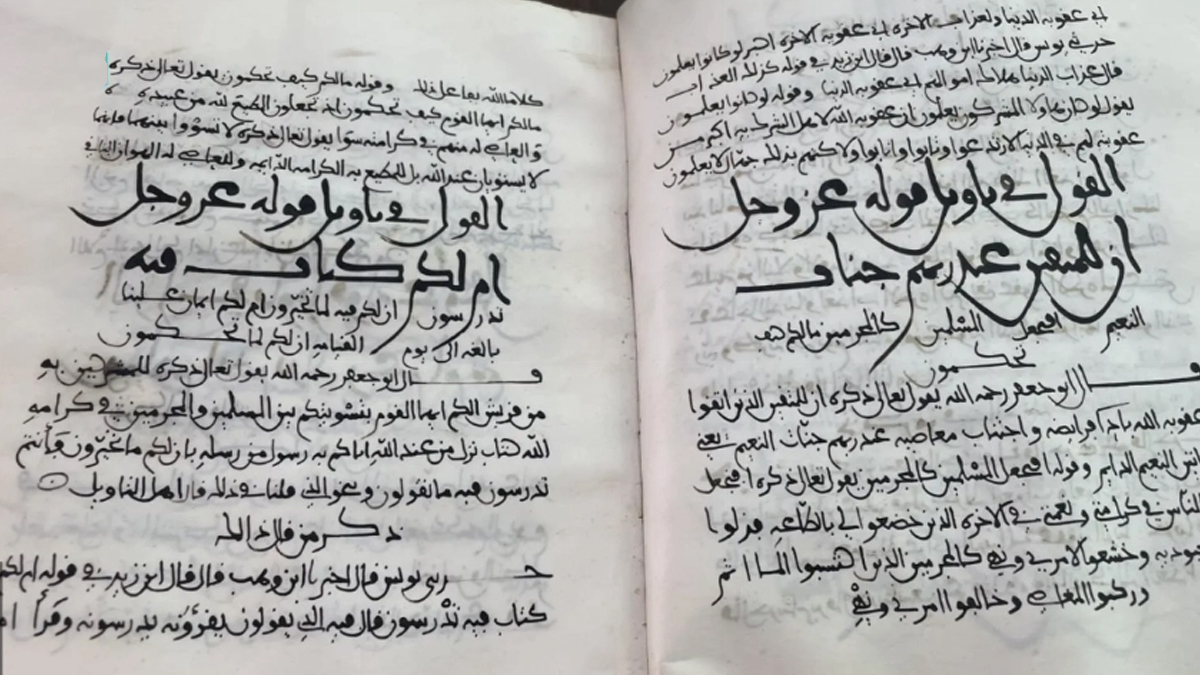 اي عقوبة الدنيا ولعذاب الاخرة اي عقوبة الاخرة اكبر لو كانوا يعلمون
حدثني يونس قال اخبرنا ابن وهب قال قال ابن زيد في قوله كذلك العذاب
قال عذاب الدنيا هلاك اموالهم اي عقوبة الدنيا وقوله لو كانوا يعلمون
يقول لو كان هاولا المشركون يعلمون ان عقوبة الله لاهل الشرك به اكبر من
عقوبته لهم في الدنيا لارتدعوا وتابوا وانابوا ولاكنهم بذلك جهال لا يعلمون
القول في تاويل قوله عز وجل
ان للمتقين عند ربهم جنات
النعيم افنجعل المسلمين كالمجرمين مالكم كيف
تحكمون
قال ابو جعفر رحمه الله يقول تعالى ذكره ان للمتقين الذين اتقوا
عقوبة الله باداء فرايضه واجتناب معاصيه عند ربهم جنات النعيم يعني
النعيم الدايم وقوله افنجعل المسلمين كالمجرمين يقول تعالى ذكره افنجعل
الناس في كرامتي ونعمتي في الاخرة الذين خضعوا لي بالطاعة وذلوا
بالعبودية وخشعوا لامري ونهيي كالمجرمين الذين اكتسبوا الماثم
وركبوا المعاصي وخالفوا امري ونهيي
كلا ما الله بفاعل ذلك وقوله مالكم كيف تحكمون يقول تعالى ذكره
مالكم ايها القوم كيف تحكمون اذ تجعلون المطيع لله من عبيده
والعاصي له منهم في كرامته سوا يقول تعالى ذكره لا تسووا بينهما فانهما
لا يستويان عند الله بل المطيع له الكرامة الدايمة والعاصي له الهوان الباقي
القول في تاويل قوله عز وجل
ام لكم كتاب فيه
تدرسون ان لكم فيه لما تخيرون ام لكم ايمان علينا
بالغة الى يوم القيامة ان لكم لما تحكمون
قال ابو جعفر رحمه الله يقول تعالى ذكره للمشركين به
من قريش الكم ايها القوم بتسويتكم بين المسلمين والمجرمين في كرامة
الله كتاب نزل من عند الله اتاكم به رسول من رسله بان لكم ما تخيرون فانتم
تدرسون فيه ما تقولون وبنحو الذي قلنا في ذلك قال اهل التاويل
ذكر من قال ذلك
حدثني يونس قال اخبرنا ابن وهب قال قال ابن زيد في قوله ام لكم
كتاب فيه تدرسون قال فيه الذي يقولون يقرؤنه يدرسونه وقرأ ام